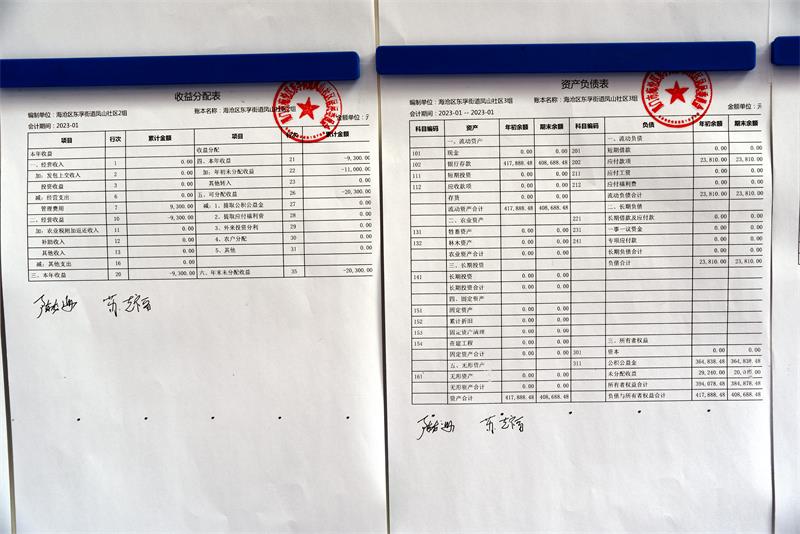 收益分配表
编制单位：海沧区东孚街道凤山社区2组 账本名称：海沧区东孚街道凤山社区2组 金额单位：元
会计期间：2023-01
项目 行次 累计金额 项目 行次 累计金额
本年收益 收益分配
一、经营收入 1 0.00 四、本年收益 21 -9,300.00
加：发包上交收入 2 0.00 加：年初未分配收益 22 -11,000.00
投资收益 3 0.00 其他转入 23 0.00
减：经营支出 6 0.00 五、可分配收益 26 -20,300.00
管理费用 7 9,300.00 减：1、提取公积公益金 27 0.00
二、经营收益 10 -9,300.00 2、提取应付福利费 28 0.00
加：农业税附加返还收入 11 0.00 3、外来投资分利 29 0.00
补助收入 12 0.00 4、农户分配 30 0.00
其他收入 13 0.00 5、其他 31 0.00
减：其他支出 16 0.00
三、本年收益 20 -9,300.00 六、年末未分配收益 35 -20,300.00
资产负债表
编制单位：海沧区东孚街道凤山社区3组 账本名称：海沧区东孚街道凤山社区3组 金额单位：元
会计期间：2023-01 -- 2023-01
科目编码 资产 年初余额 期末余额 科目编码 负债 年初余额 期末余额
一、流动资产 一、流动负债
101 现金 0.00 0.00 201 短期借款 0.00 0.00
102 银行存款 417,888.48 408,688.48 202 应付款项 23,810.00 23,810.00
111 短期投资 0.00 0.00 211 应付工资 0.00 0.00
112 应收款项 0.00 0.00 212 应付福利费 0.00 0.00
存货 0.00 0.00 流动负债合计 23,810.00 23,810.00
流动资产合计 417,888.48 408,688.48 二、长期负债
二、农业资产 221 长期借款及应付款 0.00 0.00
131 牲畜资产 0.00 0.00 231 一事一议资金 0.00 0.00
132 林木资产 0.00 0.00 241 专项应付款 0.00 0.00
农业资产合计 0.00 0.00 长期负债合计 0.00 0.00
三、长期投资 负债合计 23,810.00 23,810.00
141 长期投资 0.00 0.00
长期投资合计 0.00 0.00
四、固定资产
151 固定资产 0.00 0.00
152 累计折旧 0.00 0.00
153 固定资产清理 0.00 0.00
154 在建工程 0.00 0.00 三、所有者权益
固定资产合计 0.00 0.00 301 资本 0.00 0.00
五、无形资产 311 公积公益金 364,838.48 364,838.48
161 无形资产 0.00 0.00 未分配收益 29,240.00
无形资产合计 0.00 0.00 所有者权益合计 394,078.48 384,878.48
资产合计 417,888.48 408,688.48 负债与所有者权益合计 417,888.48 408,688.48